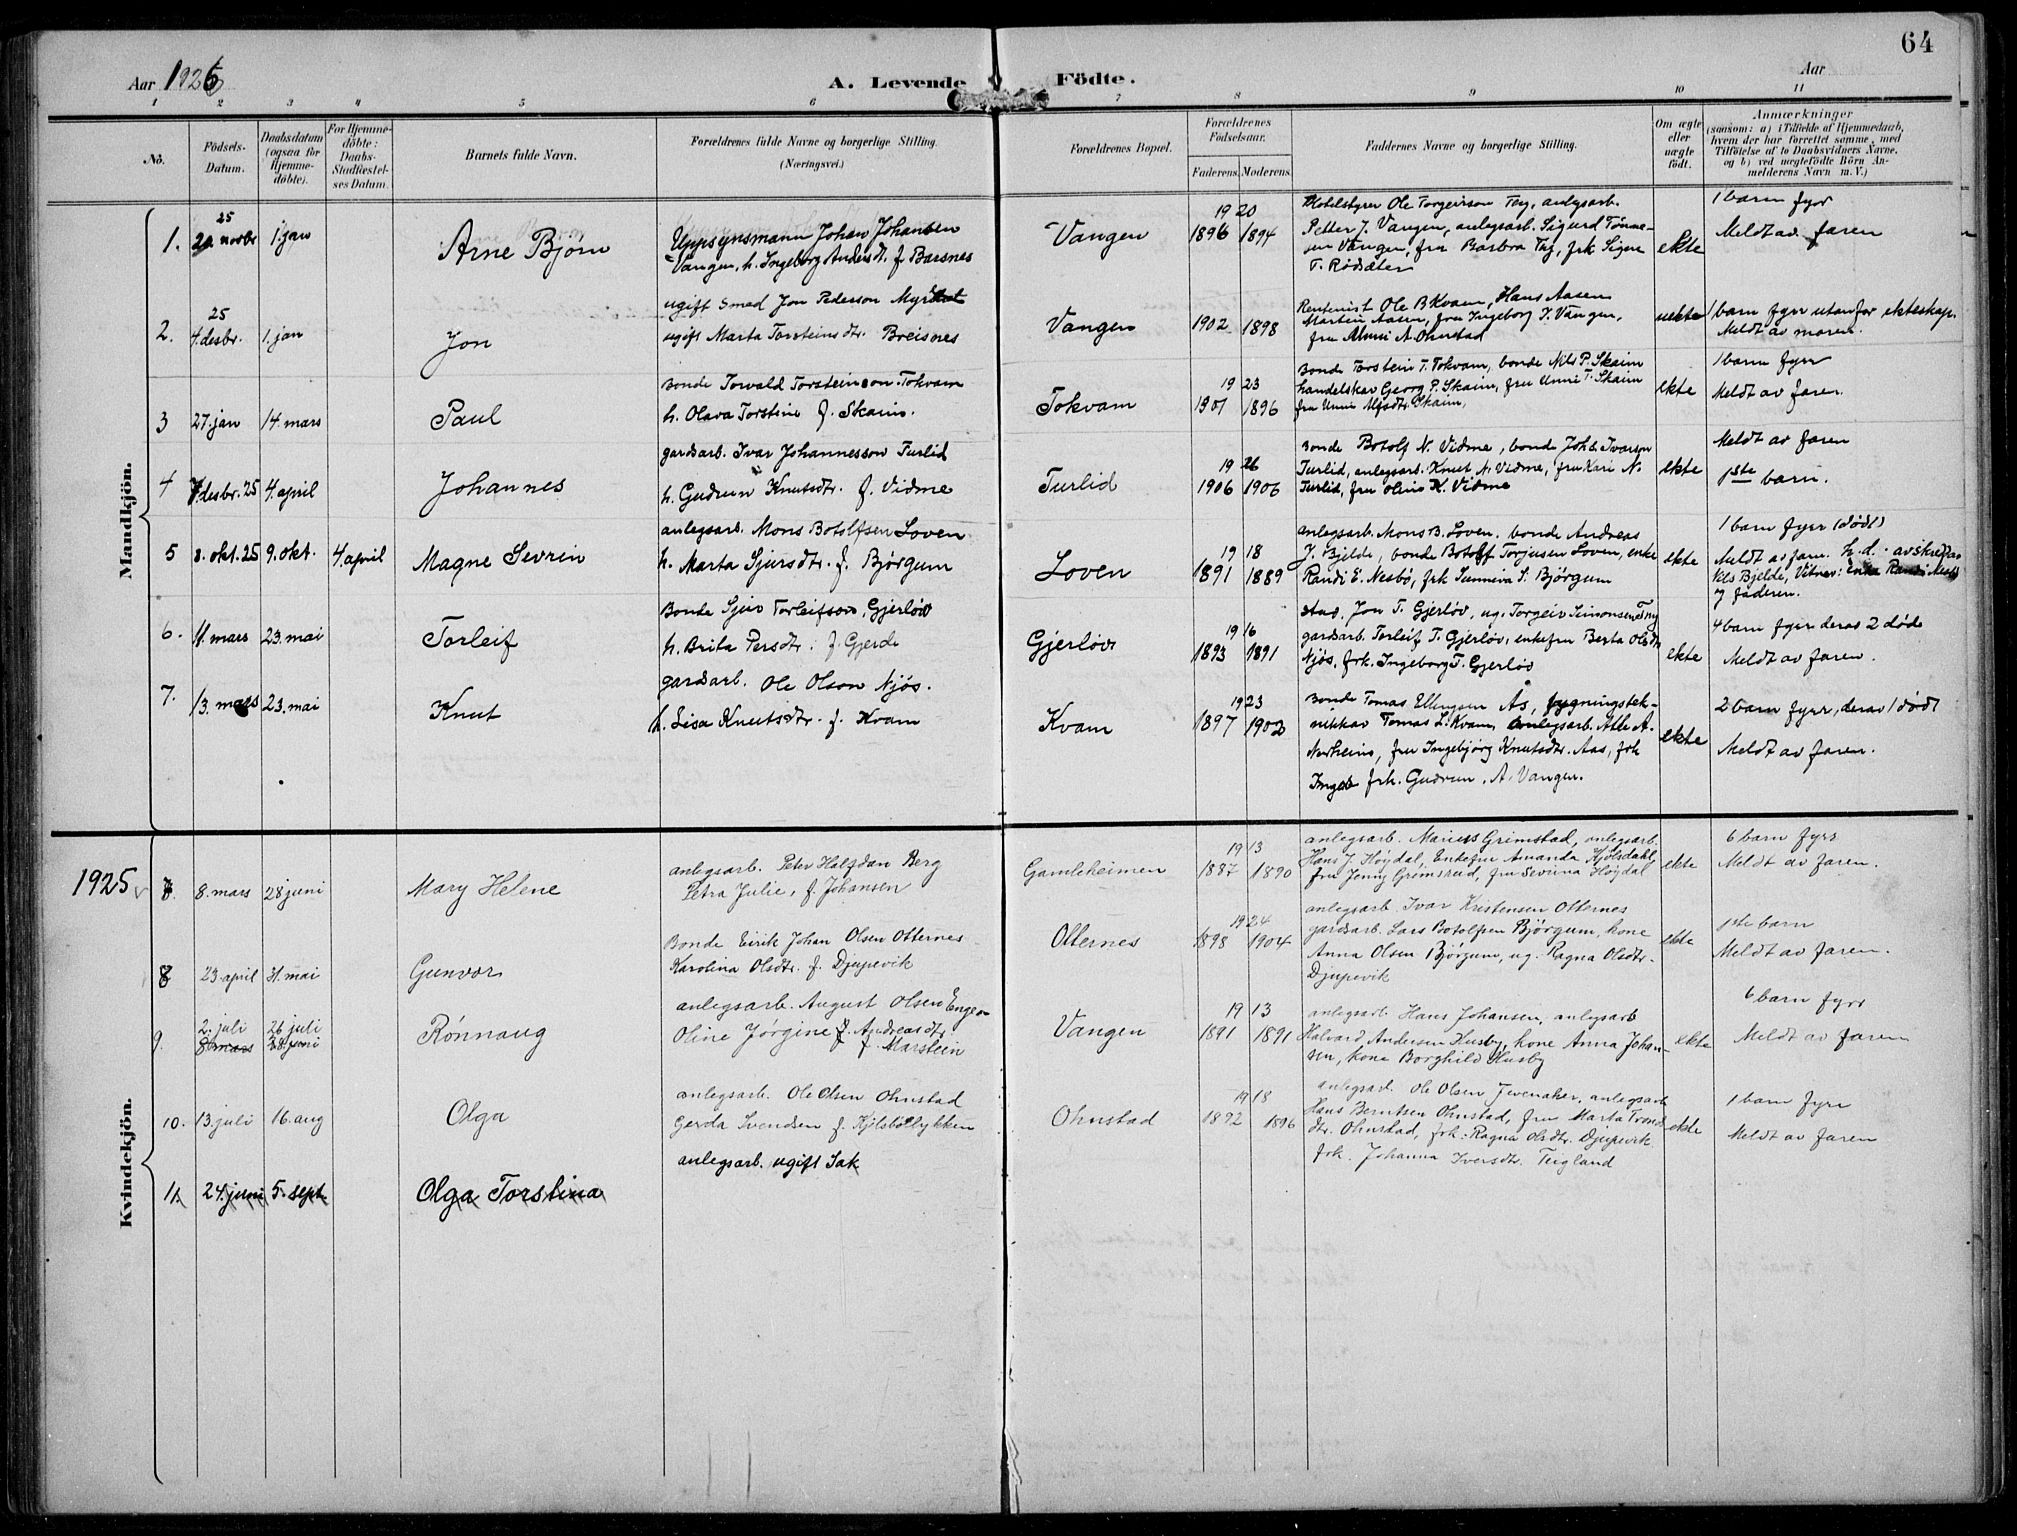 64
Aar 1926
A. Levende Födte.
Aar
1 2 3 4 5 6 7 8 9 10 11
No.
Födsels-
Datum.
Daabsdatum
(ogsaa for
Hjemme-
döbte).
For Hjemme-
döbte:
Daabs-
Stadfæstel-
ses Datum.
Barnets fulde Navn.
Forældrenes fulde Navne og borgerlige Stilling.
(Næringsvei.)
Forældrenes Bopæl.
Forældrenes
Födselsaar.
Faderens. Moderens.
Faddernes Navne og borgerlige Stilling.
Om ægte
eller
uægte
födt.
Anmærkninger
(saasom: a) i Tilfælde af Hjemmedaab,
hvem der har forrettet samme, med
Tilföielse af to Daabsvidners Navne,
og b) ved uægtefödte Börn An-
melderens Navn m. V.)
Mandkjön.
25
1. 20 novbr 1. jan
Arne Bjørn
Uppsynsmann Johan Johansen
Vangen, h. Ingeborg Andersdt. f. Barsnes
Vangen
19 20
1896 1894
Hotelstyrer Ole Torgeirson Ty, anlegsarb.
Petter J. Vangen, anlegsarb. Sigurd Tønne-
sen Vangen, fru Barbra Ty, frk Signe
T. Rødsæter
ekte
1 barn fyrr
Meldt av faren
25
2. 4. desbr. 1. jan
Jon
ugift Smed Jon Pederson
ugift Marta Torsteinsdtr. Breisnes
Vangen
1902 1898
Rentenist Ole B Kvam, Hans Aasen
Martin Aasen, fru Ingeborg J. Vangen,
fru A. Ohnstad
uekte
1 barn fyrr utanfor ekteskap.
Meldt av moren.
3 27. jan 14. mars
Paul
Bonde Torvald Torsteinson Tokvam
h. Olava Torstine f. Skaim.
Tokvam
19 23
1901 1896
Bonde Torstein T. Tokvam, bonde Nils P. Skaim
handelskar Georg P. Skaim, fru Unni T. Skaim
fru Unni Alfsdtr. Skaim,
ekte
1 barn fyrr
Meldt av faren.
4 7 desbr. 25 4. april
Johannes
gardsarb. Ivar Johannesson Turlid
h. Gudrun Knutsdtr. f. Vidme
Turlid
19 26
1906 1906
Bonde Botolf N. Vidme, bonde Johs. Ivarson
Turlid, anlegsarb. Knut N. Vidme, fru Kari N.
Turlid, fru Olina K. Vidme
ekte
Meldt av faren
1ste barn.
5 8. okt. 25 9. okt. 4. april
Magne Sevrin
anlegsarb. Mons Botolfsen Loven
h. Marta Sjursdtr. f. Bjørgum
Loven
19 18
1891 1889
anlegsarb. Mons B. Loven, bonde Andreas
J. Bjelde, bonde Botolf Torjusen Loven, enke
Randi E. Nesbø, frk Sunneva S. Bjørgum
ekte
1 barn fyrr (dødt)
Meldt av faren. h.d. av
Nils Bjelde, Vitner: enka Randi
og faderen.
6. 11. mars 23. mai
Torleif
Bonde Sjur Torleifson, Gjerløv
h. Brita Persdtr. f. Gjerde
Gjerløv
19 16
1893 1891
Jon T. Gjerløv, ug. Torgeir Simonsen Ty
gardsarb. Torleif T. Gjerløv, enkefru Berta Olsdtr
Njøs, frk. Ingeborg T. Gjerløv
ekte
4 barn fyrr derav 2 døde
Meldt av faren.
7. 13. mars 23. mai
Knut
gardsarb. Ole Olson Njøs.
h. Lisa Knutsdtr. f. Kvam
Kvam
19 23
1897 1902
Bonde Tomas Ellingsen Ås, bygningstek-
nikkar Tomas L. Kvam, anlegsarb. Atle A.
Nerheim, fru Ingebjørg Knutsdtr. Aas, frk
frk. Gudrun. A. Vangen.
ekte
2 barn fyrr, derav 1 dødt
Meldt av faren.
Kvindekjön.
1925
7. 8. mars 28 juni
Mary Helene
anlegsarb. Peter Halfdan Berg
Petra Julie, f. Johansen
Gamleheimen
19 13
1887 1890
anlegsarb. Marius Grimstad, anlegsarb.
Hans J. Høydal, Enkefru Amanda Kjölsdahl,
fru Jenny Grimsrud, fru Severina Høydal
ekte
6 barn fyrr
Meldt av faren.
8 23. april 31. mai
Gunvor
Bonde Eirik Johan Olsen Otternes
Karolina Olsdtr. f. Djupevik
Otternes
19 24
1898 1904
anlegsarb. Ivar Kristensen Otternes
gardsarb. Lars Botolfsen Bjørgum, kone
Anna Olsen Bjørgum, ug. Ragna Olsdtr.
Djupevik
ekte
1ste barn
Meldt av faren.
9. 2. juli 26 juli
8 mars 28 juni
Rønnaug
anlegsarb. August Olsen Engen
Oline Jørgine f. Andreasdtr
f. Marstein
Vangen
19 13
1891 1891
anlegsarb. Hans Johansen, anlegsarb
Halvard Andersen Husby, kone Anna Johan-
sen, kone Borghild Husby
ekte
6 barn fyrr
Meldt av faren
10. 13. juli 16. aug
Olga
anlegsarb. Ole Olsen Ohnstad
Gerda Svendsen f. Kjilsbøllykken
Ohnstad
19 18
1892 1896
anlegsarb. Ole Olsen Jevenaker, anlegsarb
Hans Berntsen Ohnstad, fru Marta Trons-
dtr. Ohnstad, frk. Ragna Olsdtr. Djupevik
frk. Johanna Iversdtr. Teigland
ekte
1 barn fyrr
Meldt av faren
11. 24. juni 5. sept.
Olga Torstina
anlegsarb. ugift Sak